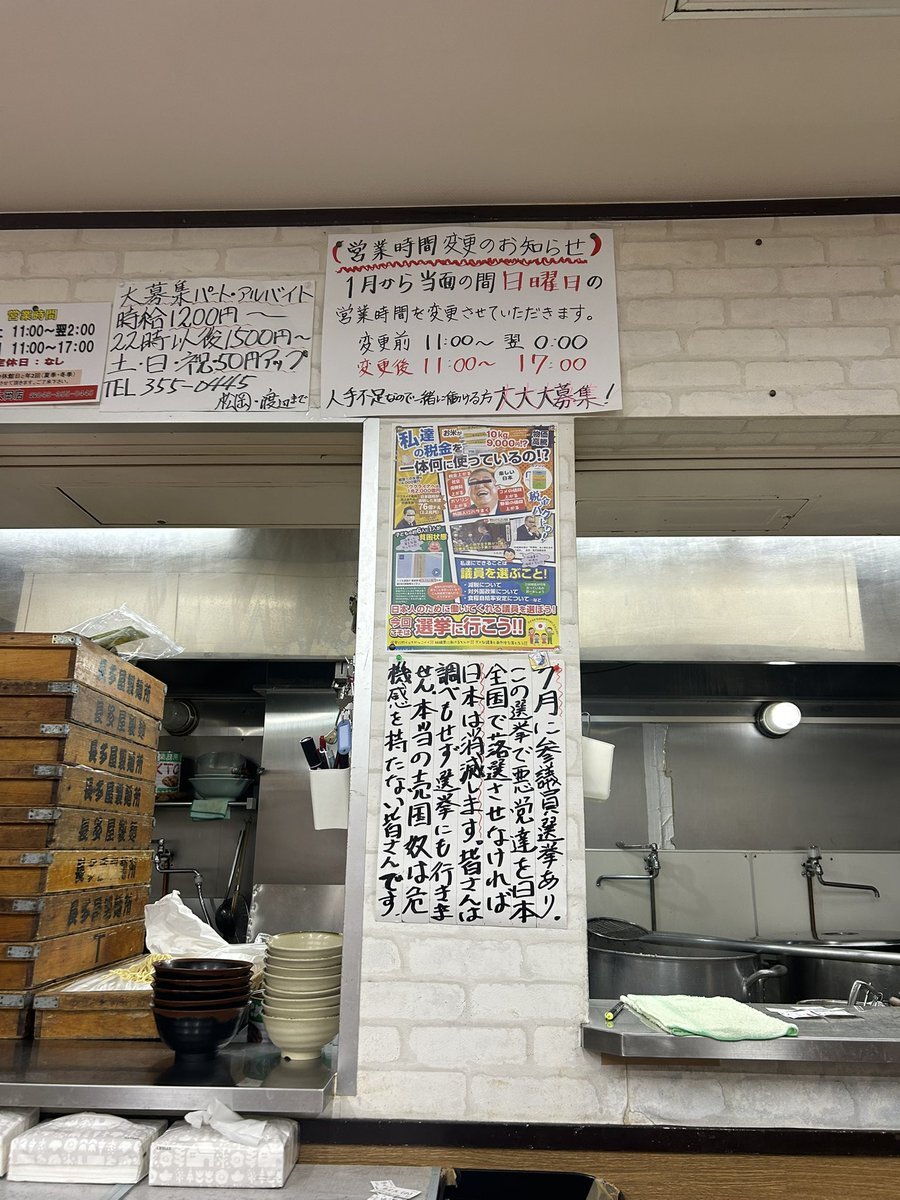 営業時間
11:00〜翌2:00
11:00〜17:00
定休日：なし
大募集パート・アルバイト
時給1200円〜
22時以後1500円〜
土・日・祝50円アップ
TEL 355-0445
松岡・渡辺まで
営業時間変更のお知らせ
1月から当面の間日曜日の
営業時間を変更させていただきます。
変更前 11:00〜 翌 0:00
変更後 11:00〜 17:00
人手不足なので一緒に働ける方大大大募集！
私達の税金を
一体何に使っているの!?
お米が
10kg
9,000円!?
物価高騰
楽しい日本
貧困状態
私達にできることは
議員を選ぶこと！
・減税について
・対外国政策について
・食糧自給率安定について など
日本人のために働いてくれる議員を選ぼう！
今回こそは
選挙に行こう!!
7月に参議員選挙あり.
この選挙で悪党達を日本
全国で落選させなければ
日本は消滅します。皆さんは
調べもせず選挙にも行きま
せん.本当の売国奴は危
機感を持たない皆さんです
長多屋製麺所
長多屋製麺所
長多屋製麺所
長多屋製麺所
長多屋製麺
長多屋製麺所
長多屋製麺所